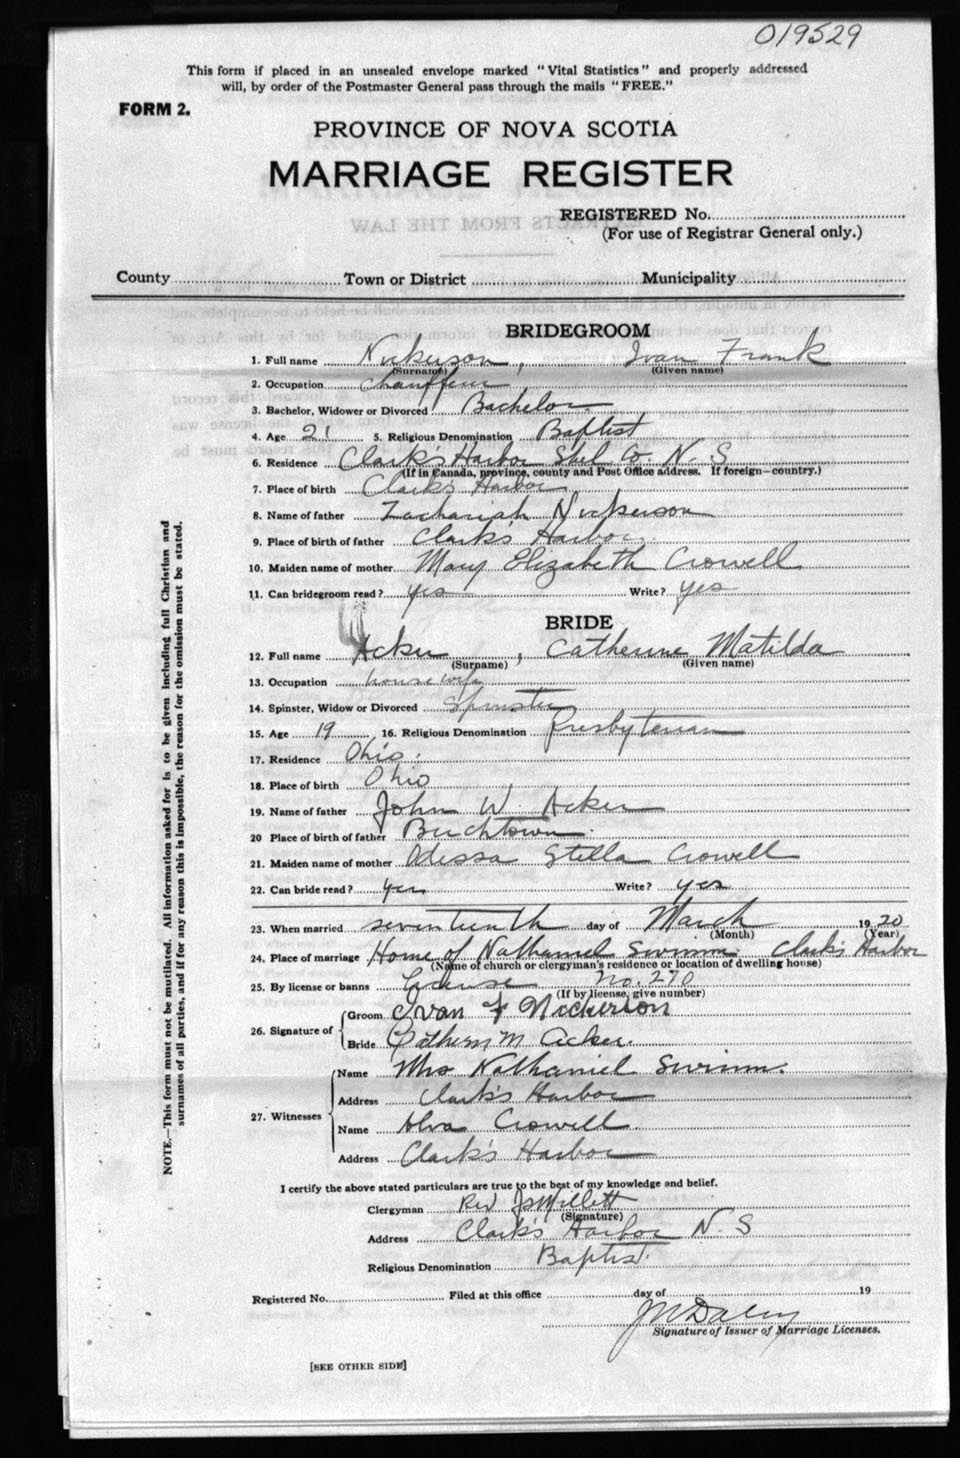 019529
This form if placed in an unsealed envelope marked "Vital Statistics" and properly addressed
will, by order of the Postmaster General pass through the mails "FREE."
FORM 2.
PROVINCE OF NOVA SCOTIA
MARRIAGE REGISTER
REGISTERED No.
(For use of Registrar General only.)
County Town or District Municipality
BRIDEGROOM
1. Full name Nickerson, Ivan Frank
(Surname) (Given name)
2. Occupation Chauffeur
3. Bachelor, Widower or Divorced Bachelor
4. Age 21 5. Religious Denomination Baptist
6. Residence Clark's Harbor Shel. Co. N. S
(If in Canada, province, county and Post Office address. If foreign—country.)
7. Place of birth Clark's Harbor
8. Name of father Zachariah Nickerson
9. Place of birth of father Clark's Harbor
10. Maiden name of mother Mary Elizabeth Crowell
11. Can bridegroom read? yes Write? yes
BRIDE
12. Full name Acker, Catherine Matilda
(Surname) (Given name)
13. Occupation housewife
14. Spinster, Widow or Divorced Spinster
15. Age 19 16. Religious Denomination Presbyterian
17. Residence Ohio.
18. Place of birth Ohio
19. Name of father John W. Acker
20 Place of birth of father Birchtown.
21. Maiden name of mother Odessa Stella Crowell
22. Can bride read? yes Write? yes
23. When married seventeenth day of March 1920
(Month) (Year)
24. Place of marriage Home of Nathaniel Swimm Clark's Harbor
(Name of church or clergyman's residence or location of dwelling house)
25. By license or banns License No. 270
(If by license, give number)
26. Signature of Groom Ivan F Nickerson
Bride Cathern M Acker.
27. Witnesses Name Mrs Nathaniel Swimm.
Address Clark's Harbor
Name Alva Crowell
Address Clark's Harbor
I certify the above stated particulars are true to the best of my knowledge and belief.
Clergyman Rev Millett
(Signature)
Address Clark's Harbor N. S
Religious Denomination Baptist.
Registered No. Filed at this office day of 19
Signature of Issuer of Marriage Licenses.
[SEE OTHER SIDE]
NOTE.—This form must not be mutilated. All information asked for is to be given including full Christian and
surnames of all parties, and if for any reason this is impossible, the reason for the omission must be stated.